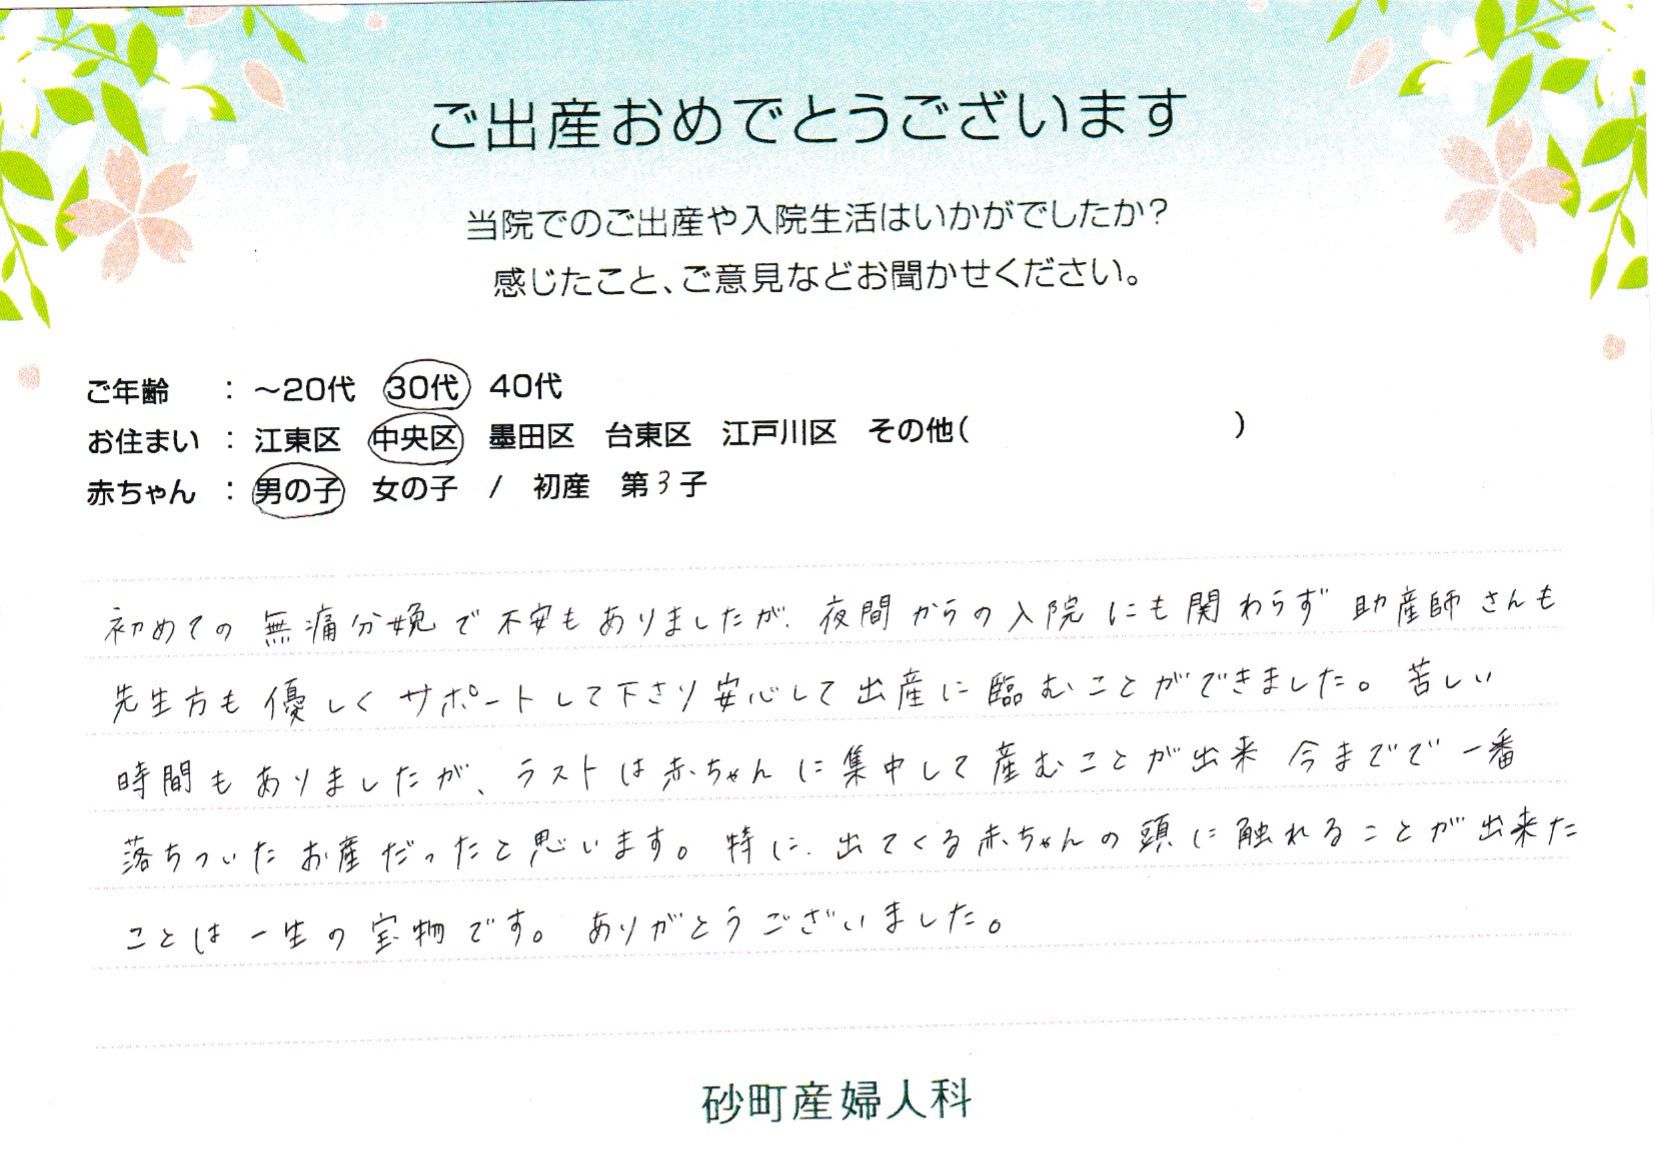 ご出産おめでとうございます
当院でのご出産や入院生活はいかがでしたか?
感じたこと、ご意見などお聞かせください。
ご年齢 : ～20代 30代 40代
お住まい : 江東区 中央区 墨田区 台東区 江戸川区 その他( )
赤ちゃん : 男の子 女の子 / 初産 第3子
初めての無痛分娩で不安もありましたが、夜間からの入院にも関わらず助産師さんも
先生方も優しくサポートして下さり安心して出産に臨むことができました。苦しい
時間もありましたが、ラストは赤ちゃんに集中して産むことが出来 今までで一番
落ちついたお産だったと思います。特に、出てくる赤ちゃんの頭に触れることが出来た
ことは一生の宝物です。ありがとうございました。
砂町産婦人科